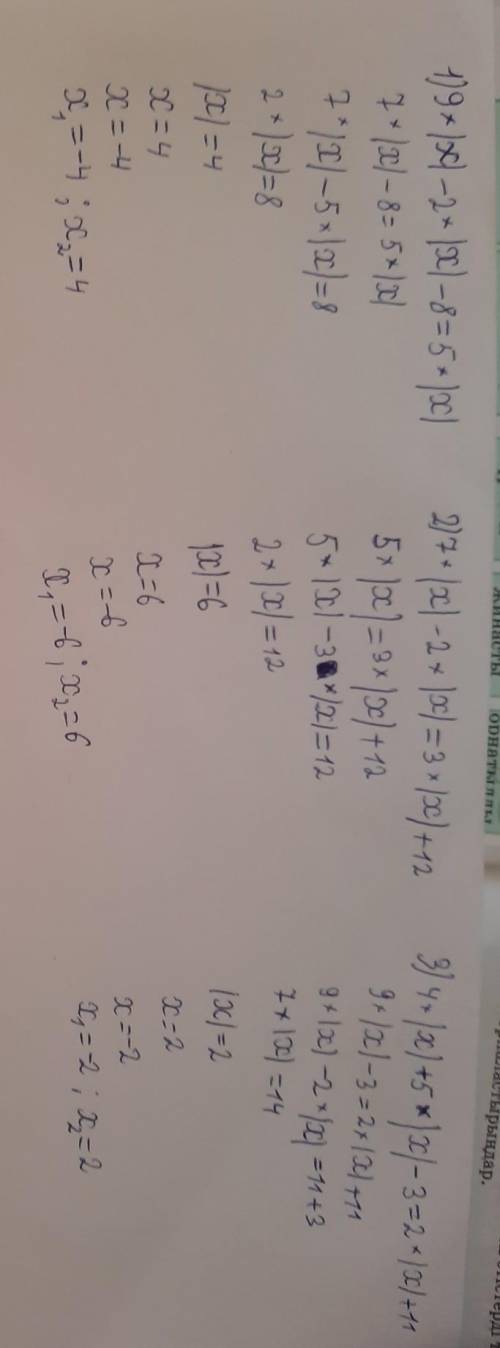 1) 9 × |x| - 2 × |x| - 8 = 5 × |x|
7 × |x| - 8 = 5 × |x|
7 × |x| - 5 × |x| = 8
2 × |x| = 8
|x| = 4
x = 4
x = -4
x₁ = -4 ; x₂ = 4
2) 7 × |x| - 2 × |x| = 3 × |x| + 12
5 × |x| = 3 × |x| + 12
5 × |x| - 3 × |x| = 12
2 × |x| = 12
|x| = 6
x = 6
x = -6
x₁ = -6 ; x₂ = 6
3) 4 × |x| + 5 × |x| - 3 = 2 × |x| + 11
9 × |x| - 3 = 2 × |x| + 11
9 × |x| - 2 × |x| = 11 + 3
7 × |x| = 14
|x| = 2
x = 2
x = -2
x₁ = -2 ; x₂ = 2